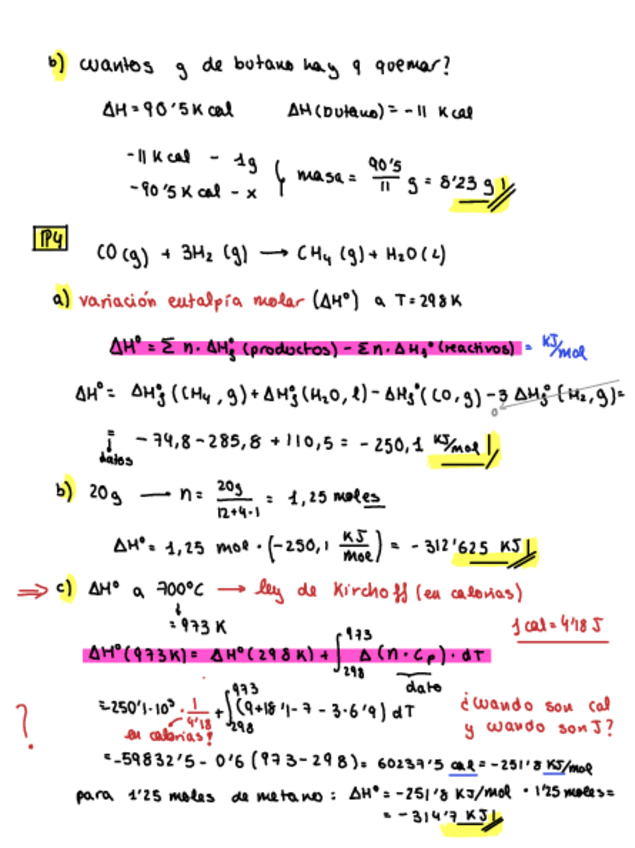 b) cuantos g de butano hay q quemar?
ΔH = 90'5 Kcal ΔH(butano) = -11 Kcal
-11 Kcal - 1g
-90'5 Kcal - x } masa = 90'5/11 g = 8'23 g
P4
CO(g) + 3H₂(g) → CH₄(g) + H₂O(l)
a) variación entalpía molar (ΔH°) a T=298K
ΔH° = Σ n·ΔHf°(productos) - Σn·ΔHf°(reactivos) = KJ/mol
ΔH° = ΔHf°(CH₄, g) + ΔHf°(H₂O, l) - ΔHf°(CO, g) - 3 ΔHf°(H₂, g) =
0
= -74,8 - 285,8 + 110,5 = -250,1 KJ/mol
↓
datos
b) 20g → n = 20g/12+4·1 = 1,25 moles
ΔH° = 1,25 mol · (-250,1 KJ/mol) = -312'625 KJ
⇒ c) ΔH° a 700°C → ley de Kirchoff (en calorias)
↓
= 973 K
1 cal = 4'18 J
ΔH°(973K) = ΔH°(298K) + ∫₂₉₈⁹⁷³ Δ(n·Cp)·dT
dato
= -250'1·10³ · 1/4'18 + ∫₂₉₈⁹⁷³ (9+18'1-7-3·6'9) dT
en calorias?
¿cuando son cal
y cuando son J?
?
= -59832'5 - 0'6 (973-298) = 60237'5 cal = -251'8 KJ/mol
para 1'25 moles de metano: ΔH° = -251'8 KJ/mol · 1'25 moles =
= -314'7 KJ